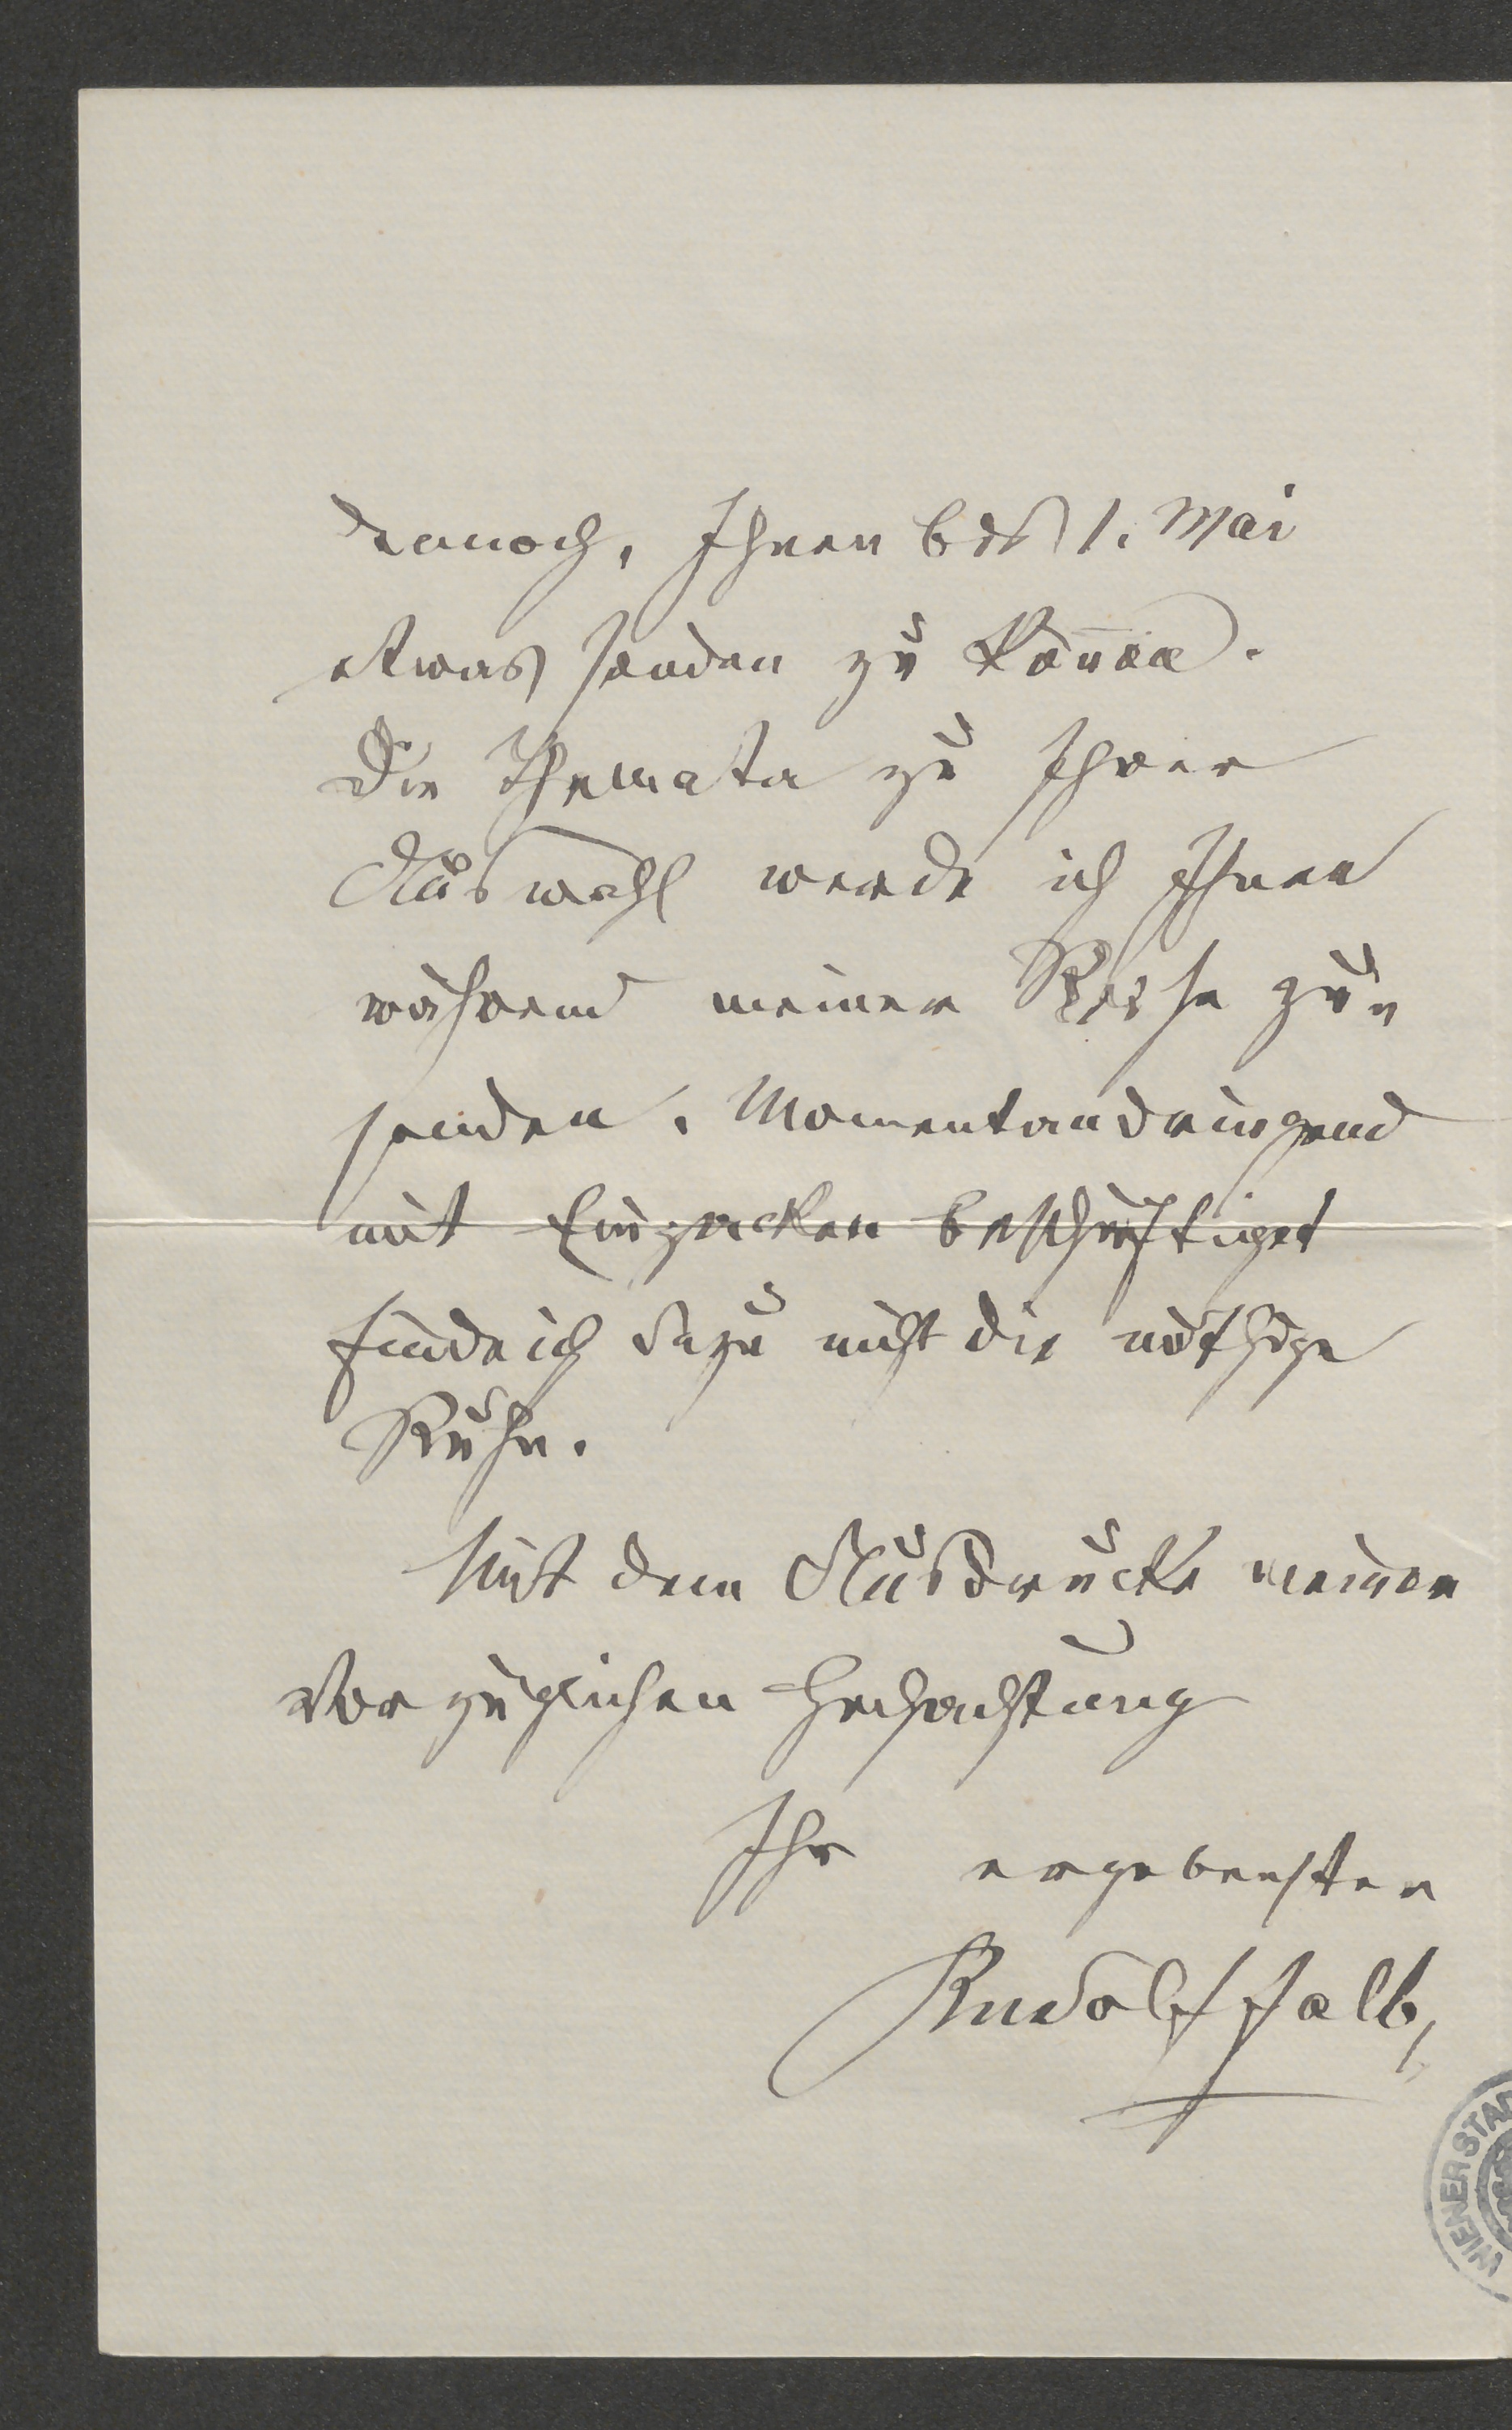 dennoch, Ihnen bis 1. Mai
etwas senden zu könen.
Die Themata zu Ihrer
Auswahl werde ich Ihnen
während meiner Reise zu=
senden. Momentan dringend
mit Einpacken beschäftiget
finde ich dazu nicht die nöthige
Ruhe.
Mit dem Ausdrucke meiner
vorzüglichen Hochachtung
Ihr ergebenster
Rudolf Falb,
WIENER STA